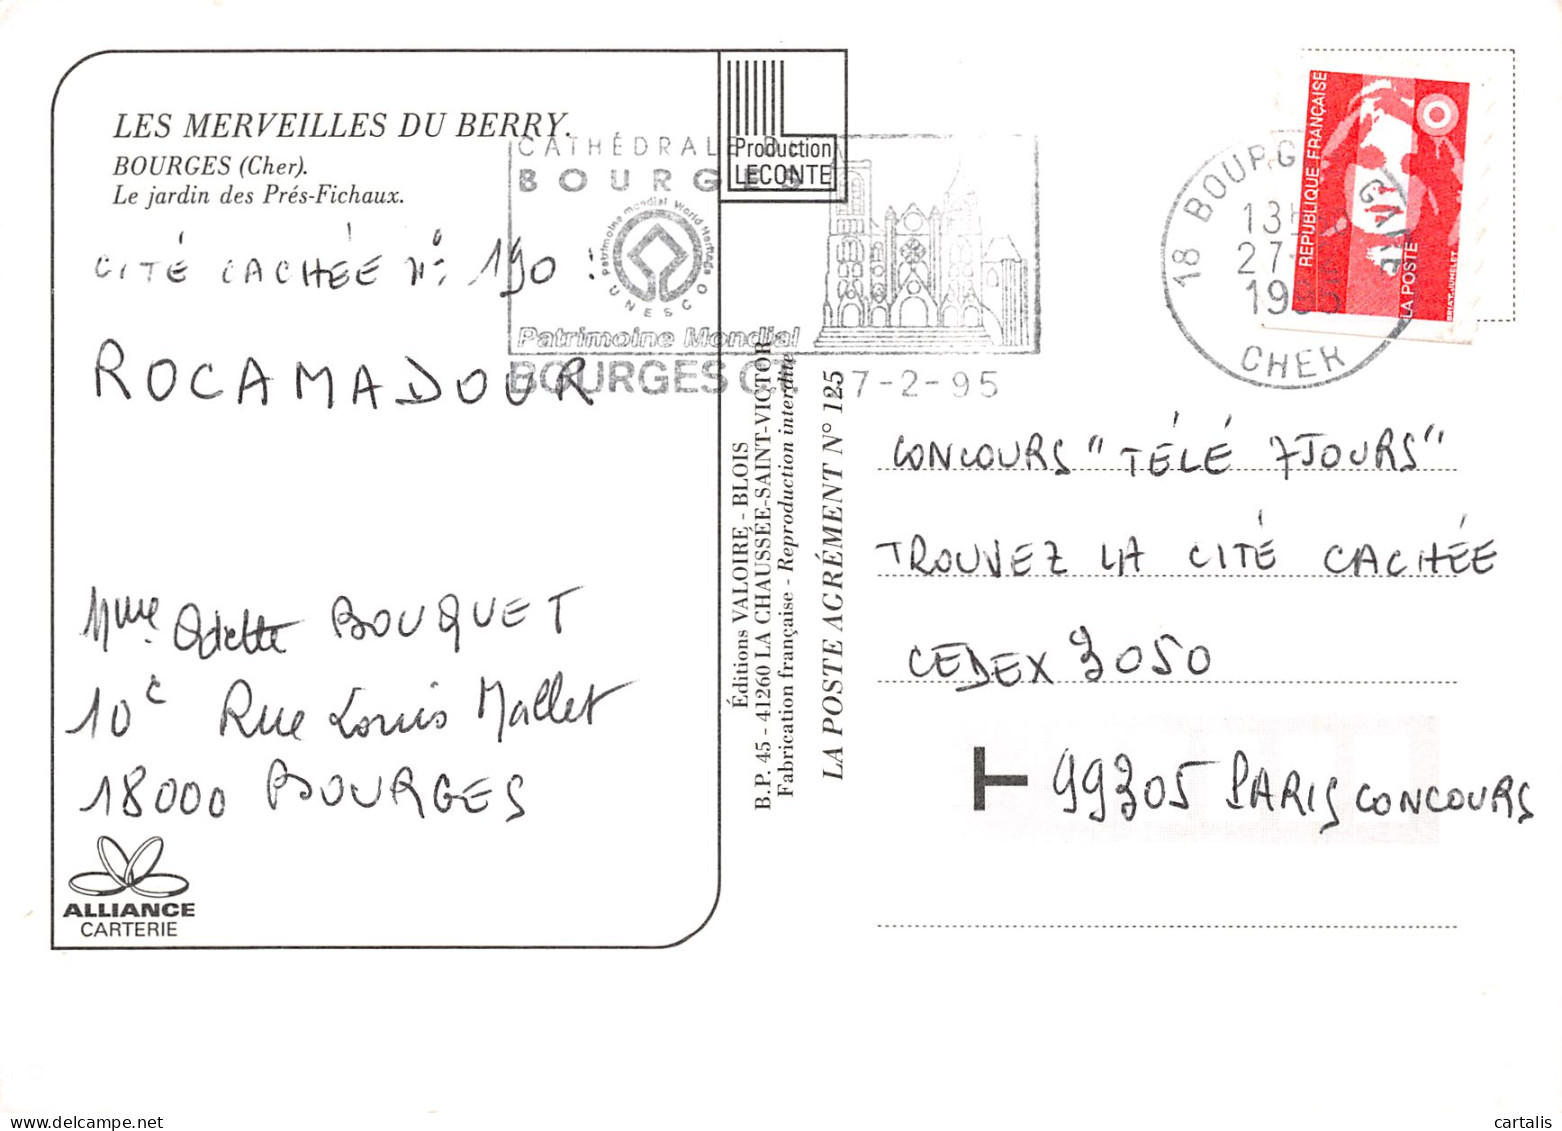 LES MERVEILLES DU BERRY.
BOURGES (Cher).
Le jardin des Prés-Fichaux.
CITÉ CACHÉE N°: 190 :
ROCAMADOUR
Mme Odette BOUQUET
10c Rue Louis Mallet
18000 BOURGES
ALLIANCE
CARTERIE
CATHÉDRALE DE
BOURGES
Patrimoine mondial World Heritage
UNESCO
Patrimoine Mondial
BOURGES C.T. 27-2-95
Production
LECONTE
Éditions VALOIRE - BLOIS
B.P. 45 - 41260 LA CHAUSSÉE-SAINT-VICTOR
Fabrication française - Reproduction interdite
LA POSTE AGRÉMENT N° 125
18 BOURGES GARE
13H
27-
19
CHER
RÉPUBLIQUE FRANÇAISE
LA POSTE
BRIAT-JUMELET
CONCOURS "TÉLÉ 7 JOURS"
TROUVEZ LA CITÉ CACHÉE
CEDEX 3050
T 99305 PARIS CONCOURS
cartalis